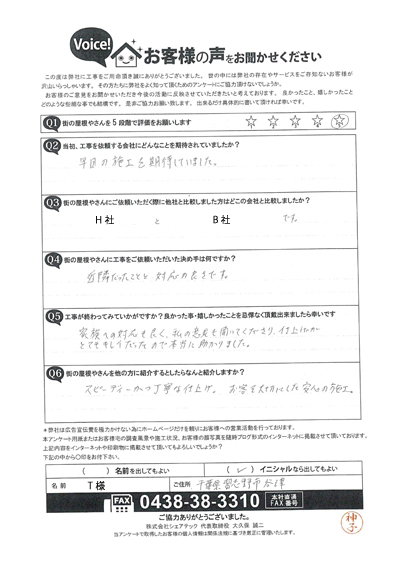 Voice! お客様の声をお聞かせください
この度は弊社に工事をご用命頂き誠にありがとうございました。世の中には弊社の存在やサービスをご存知ないお客様が
沢山いらっしゃいます。その方たちに弊社をよく知って頂くためのアンケートにご協力頂けないでしょうか。
お客様のご意見をお聞かせいただき今後の活動に反映させていただきたいと考えております。良かったこと、嬉しかったこと
どのような些細な事でも結構です。是非ご協力お願い致します。出来るだけ具体的に書いて頂ければ幸いです。
Q1 街の屋根やさんを5段階で評価をお願いします
Q2 当初、工事を依頼する会社にどんなことを期待されていましたか?
早目の施工を期待していました。
Q3 街の屋根やさんにご依頼いただく際に他社と比較しました方はどこの会社と比較しましたか?
H社 と B社 です。
Q4 街の屋根やさんに工事をご依頼いただいた決め手は何ですか?
近隣だったことと対応の良さです。
Q5 工事が終わってみていかがですか?良かった事・嬉しかったことを忌憚なく頂戴出来ましたら幸いです
家族への対応も良く、私の意見も聞いてくださり、仕上げが
とてもきれいだったので本当に助かりました。
Q6 街の屋根やさんを他の方に紹介するとしたらなんと紹介しますか?
スピーディーかつ丁寧な仕上げ。お客を大切にした安心の施工。
*弊社は広告宣伝費を極力かけない為にホームページだけを頼りにお客様への営業活動を行っております。
本アンケート用紙またはお客様宅の調査風景や施工状況、お客様の顔写真を随時ブログ形式のインターネットに掲載させて頂いております。
上記内容をインターネットや印刷物に掲載させて頂いてもよろしいでしょうか?
下記の中から〇印をお付け下さい。
( )名前を出してもよい (✓)イニシャルなら出してもよい
名前 T様 ご住所 千葉県習志野市谷津
FAX 0438-38-3310 本社直通 FAX番号
ご協力ありがとうございました。
株式会社シェアテック 代表取締役 大久保 誠二
当アンケートで取得したお客様の個人情報は関係法規に基づき厳正に管理いたします。
神子